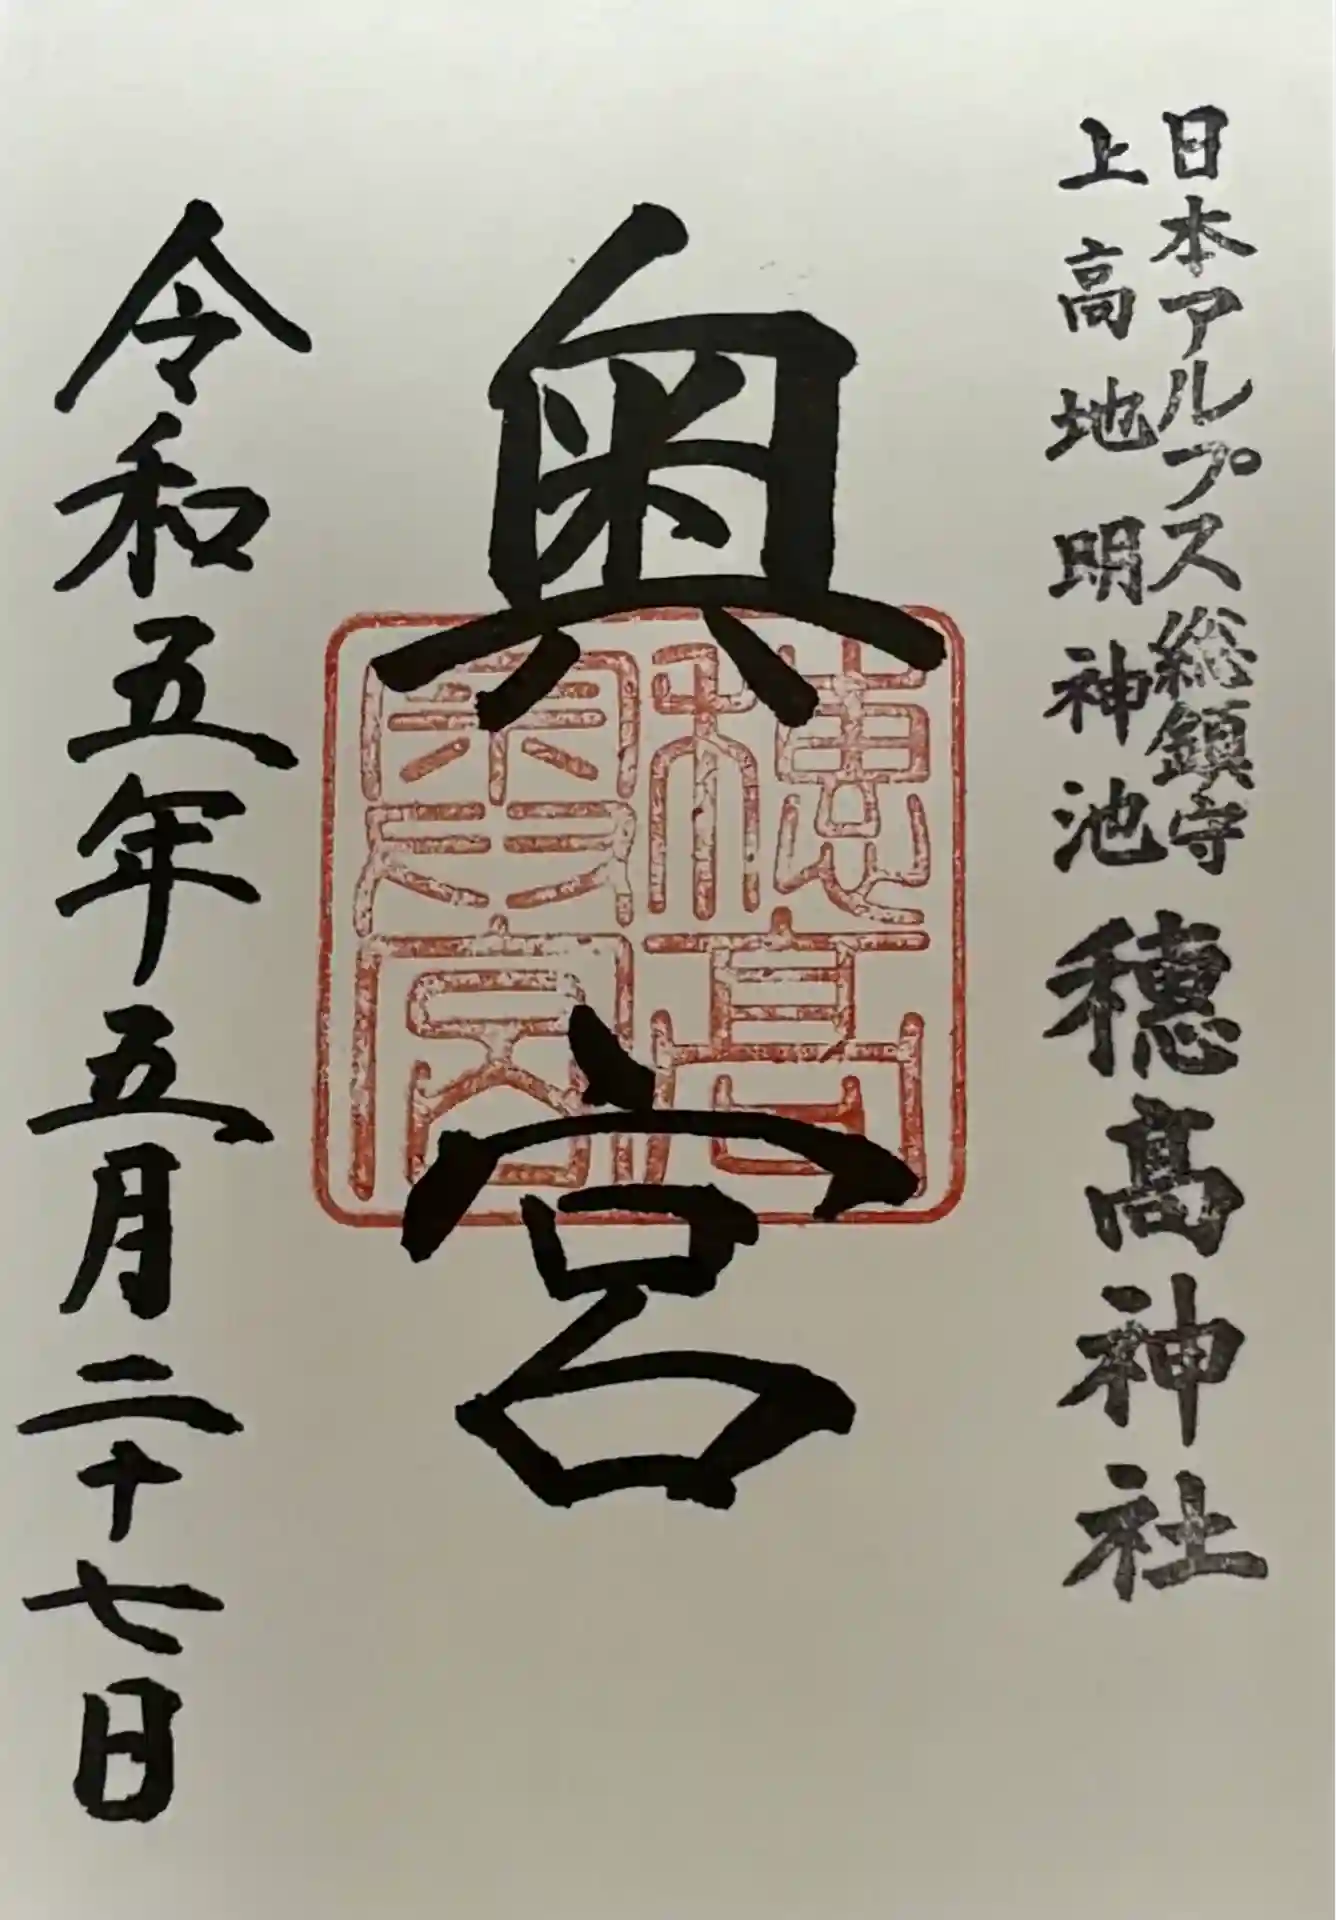 日本アルプス総鎮守
上高地明神池
穂髙神社
奥宮
穂高
令和五年五月二十七日